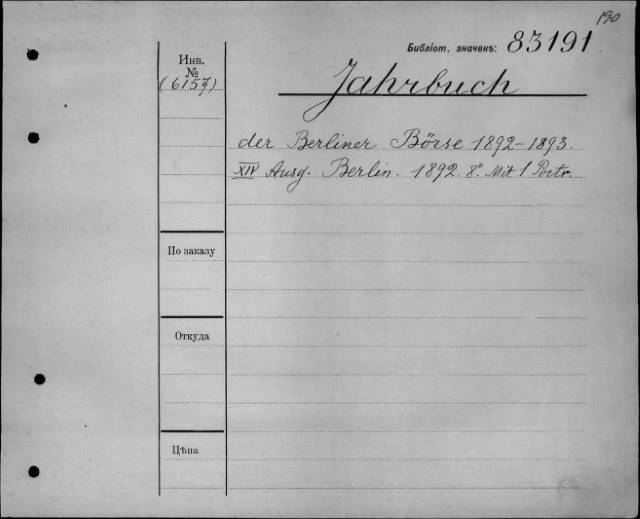 190
Библіот. значекъ: 83191
Инв.
№
(6157)
Jahrbuch
der Berliner Börse 1892-1893.
XIV Ausg. Berlin. 1892. 8° Mit 1 Portr.
По заказу
Откуда
Цѣна